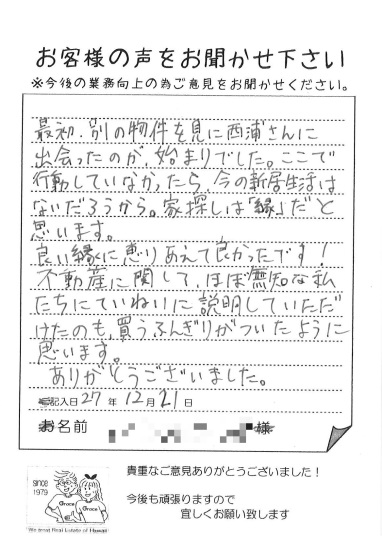 お客様の声をお聞かせ下さい
※今後の業務向上の為ご意見をお聞かせください。
最初、別の物件を見に西浦さんに
出会ったのが、始まりでした。ここで
行動していなかったら、今の新居生活は
ないだろうから。家探しは「縁」だと
思います。
良い縁に恵りあえて良かったです！
不動産に関して、ほぼ無知な私
たちにていねいに説明していただ
けたのも、買うふんぎりがついたように
思います。
ありがとうございました。
ご記入日27年12月21日
お名前 様
since
1979
Grace
Grace
We are at Real Estate of Hawaii
貴重なご意見ありがとうございました！
今後も頑張りますので
宜しくお願い致します